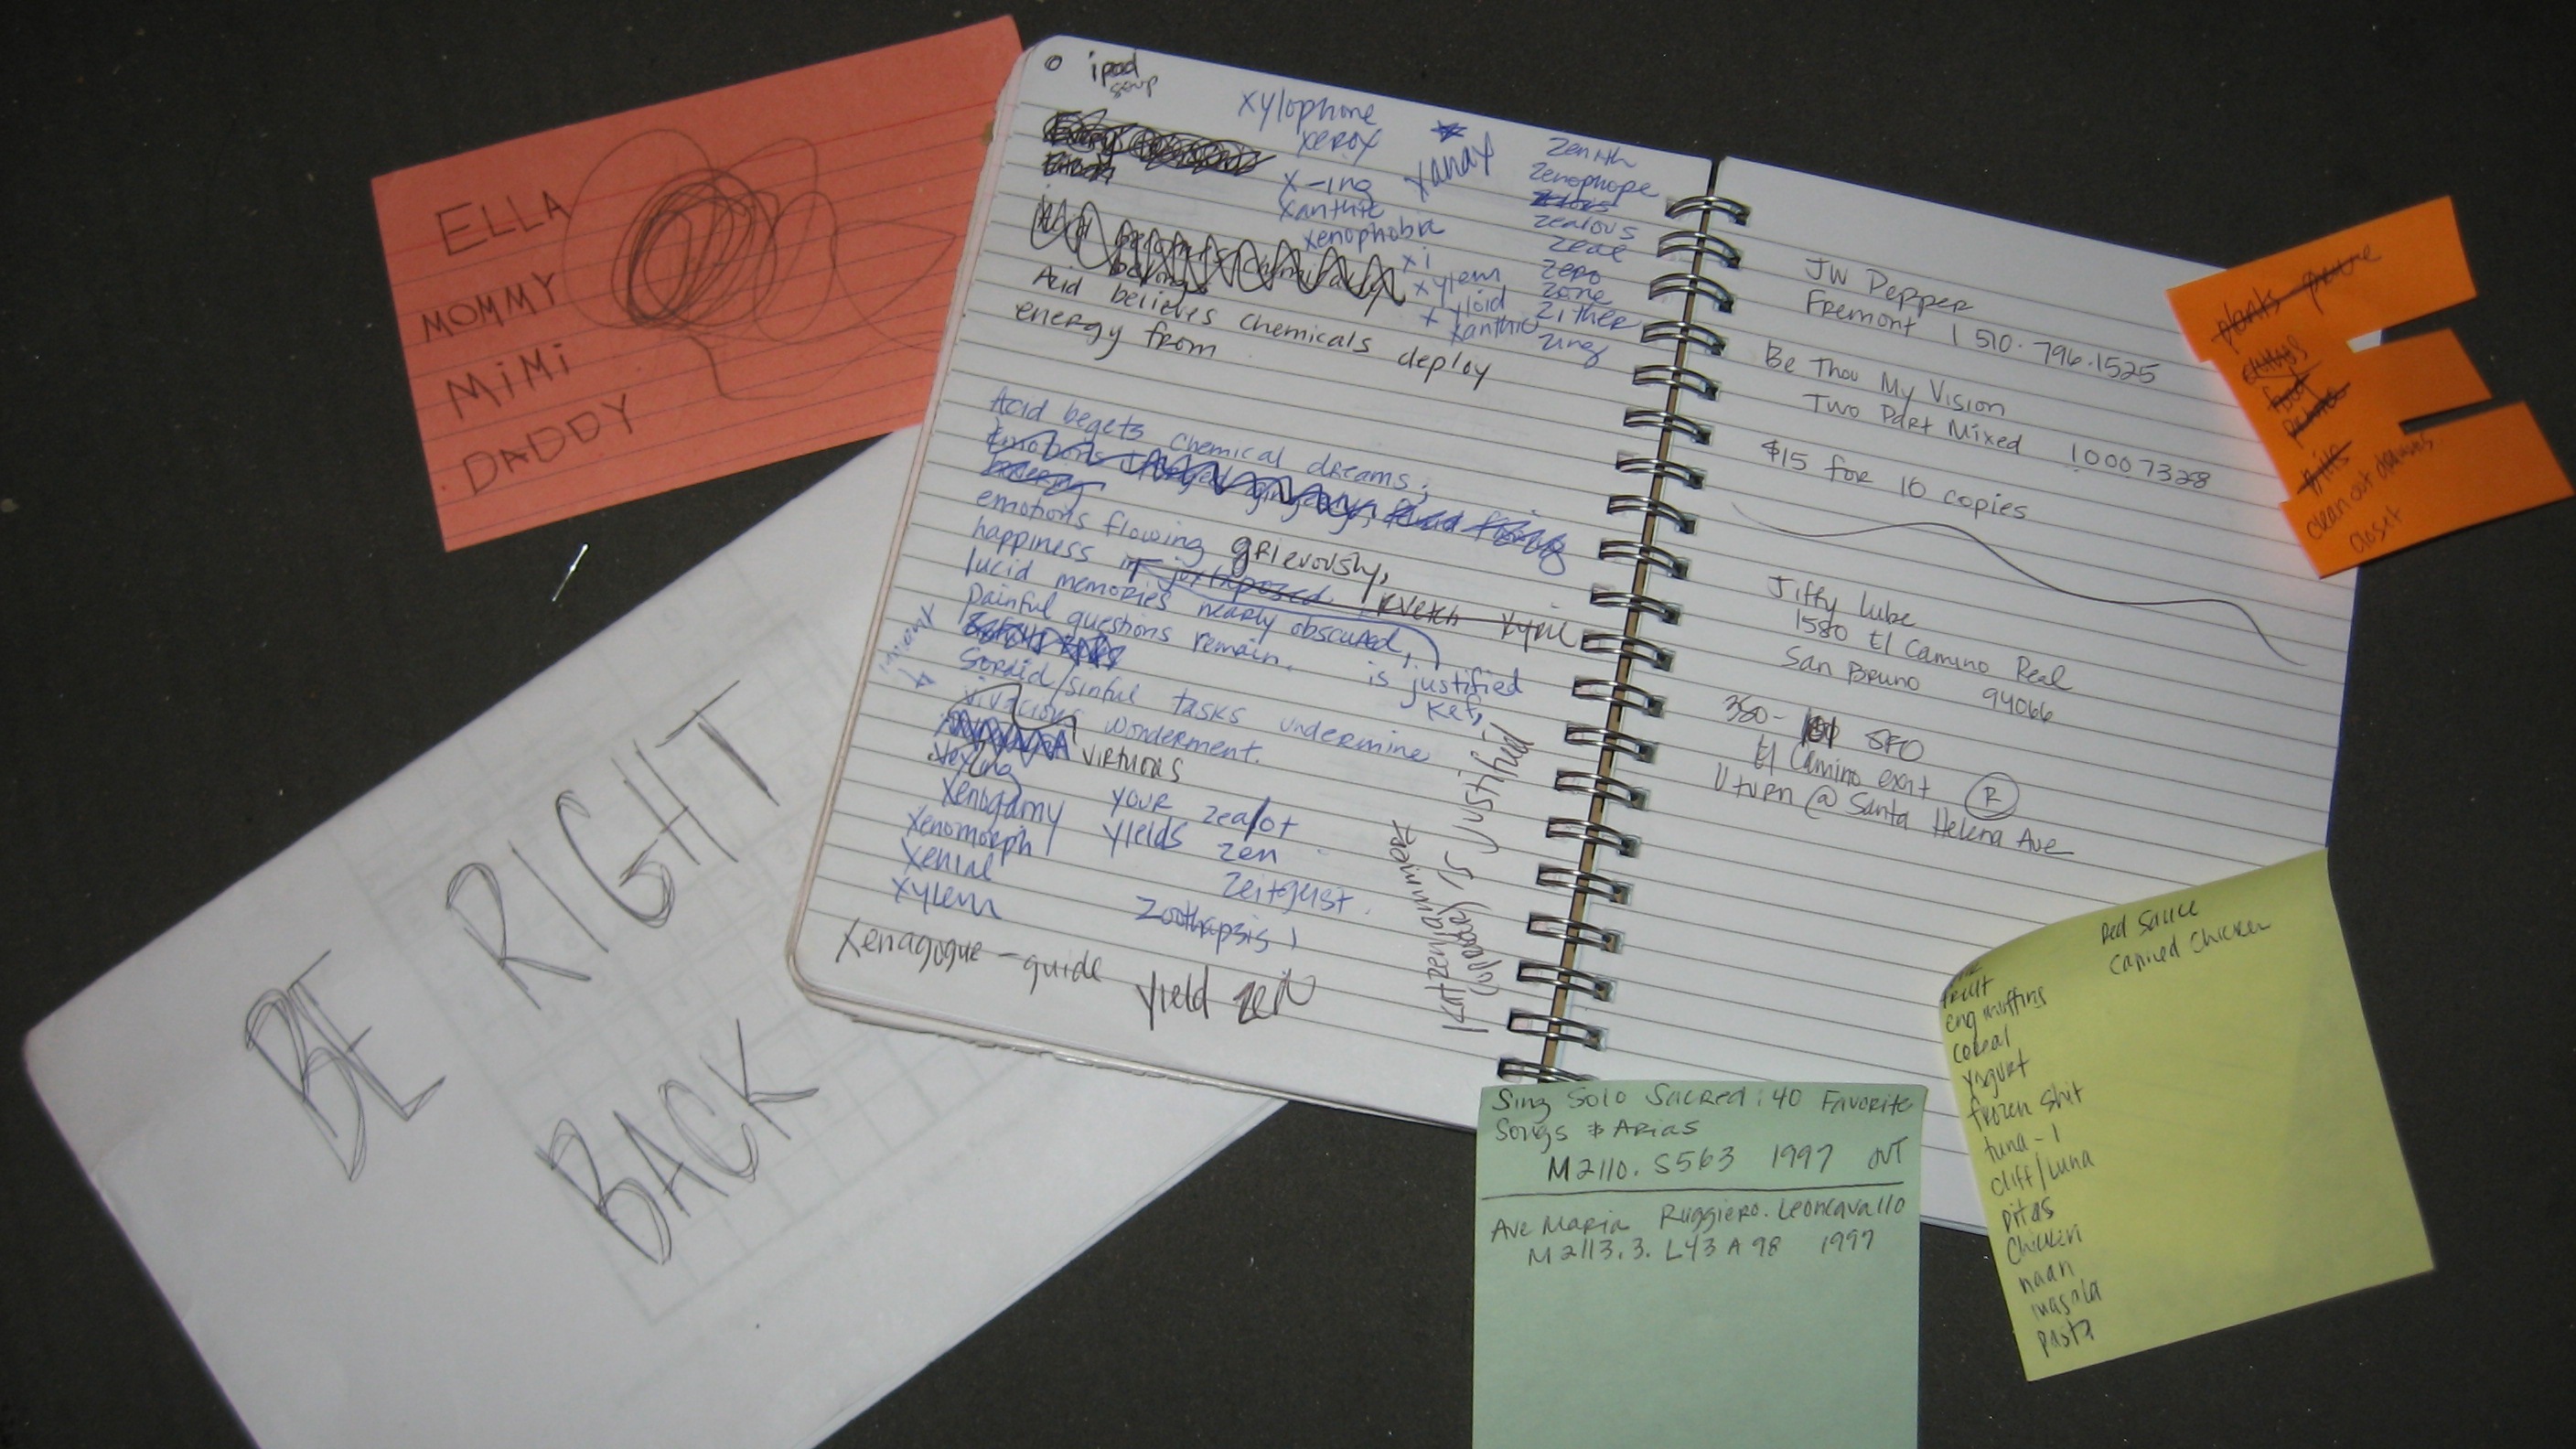 ELLA
MOMMY
MiMi
DADDY
BE RIGHT
BACK
ipod
soup
xylophone
xerox
x-ing
xanthic
xenophobia
xi
xylem
xyloid
xanthic
xanax
zenith
zenophope
zealous
zeal
zero
zone
zither
zing
Acid believes chemicals deploy
energy from
Acid begets chemical dreams;
emotions flowing grievously,
happiness juxtaposed kvetch
lucid memories nearly obscured,
painful questions remain.
is justified
Kef,
Sordid/sinful tasks undermine
vivacious wonderment.
virtuous
vexing
xenogamy your zealot
xenomorph yields zen
xenial zeitgeist.
xylem
Zoothapsis!
Xenagogue - guide
yield zen
Katzenjammer
is Justified
JW Pepper
Fremont 1 510.796.1525
Be Thou My Vision
Two Part Mixed 10007328
$15 for 10 copies
Jiffy Lube
1580 El Camino Real
San Bruno 94066
380- 101 SFO
El Camino exit R
U turn @ Santa Helena Ave
plants
food
clean out
closet
Red Sauce
Canned Chicken
fruit
eng muffins
cereal
yogurt
frozen shit
tuna-1
cliff/luna
pitas
chicken
naan
masala
pasta
Sing Solo Sacred: 40 Favorite
Songs & Arias
M2110. S563 1997
Ave Maria Ruggiero. Leoncavallo
M2113.3. L43 A98 1997